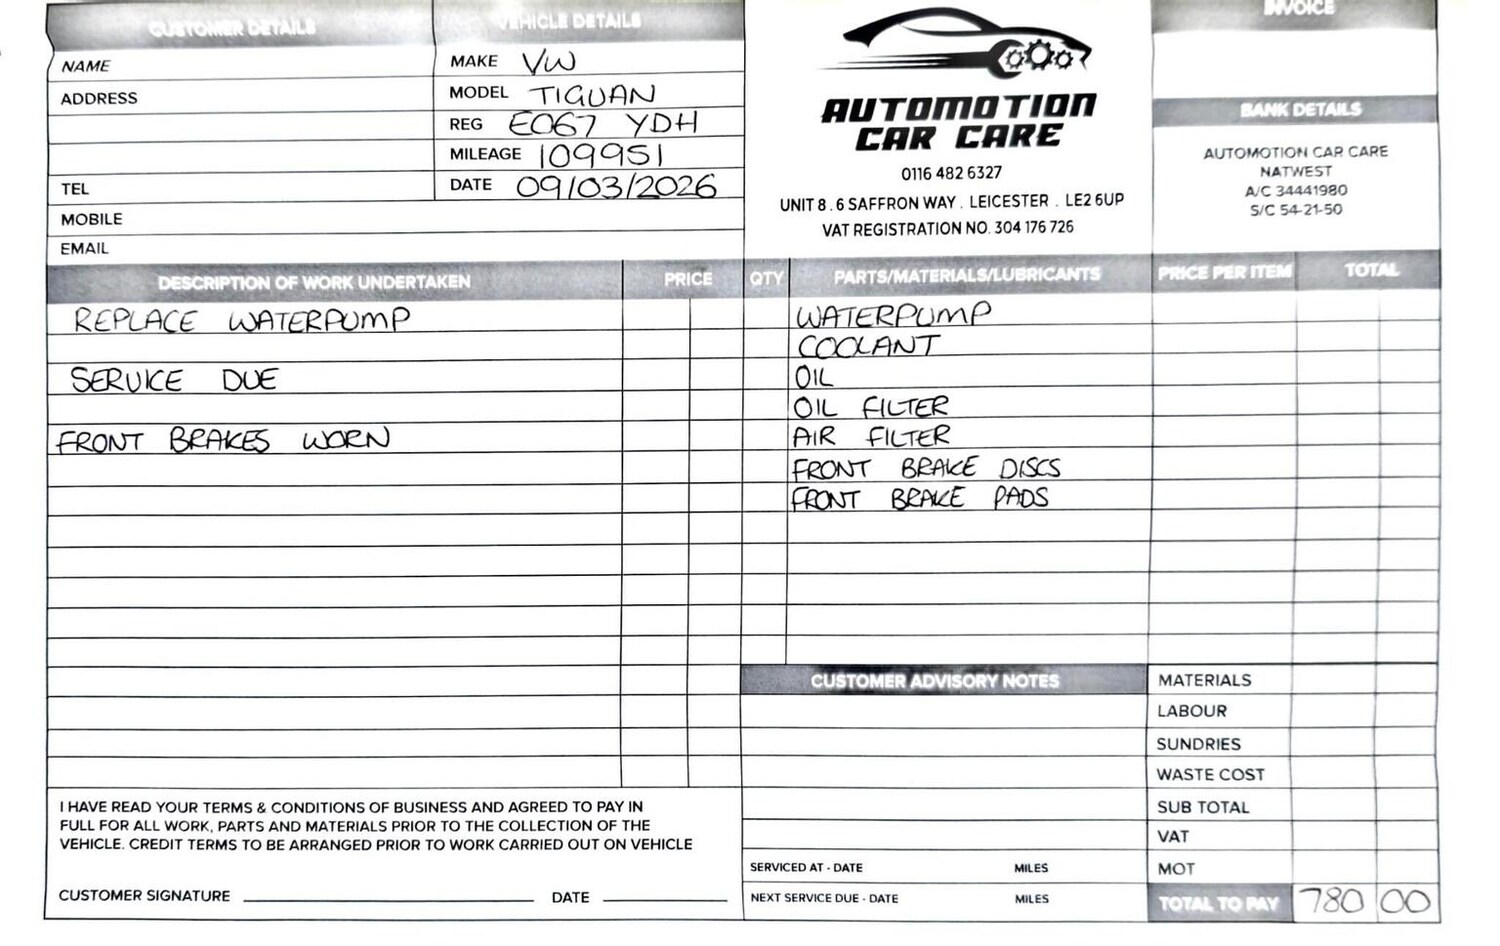 CUSTOMER DETAILS
VEHICLE DETAILS
INVOICE
NAME
ADDRESS
TEL
MOBILE
EMAIL
MAKE VW
MODEL TIGUAN
REG EO67 YDH
MILEAGE 109951
DATE 09/03/2026
AUTOMOTION
CAR CARE
0116 482 6327
UNIT 8 . 6 SAFFRON WAY . LEICESTER . LE2 6UP
VAT REGISTRATION NO. 304 176 726
BANK DETAILS
AUTOMOTION CAR CARE
NATWEST
A/C 34441980
S/C 54-21-50
DESCRIPTION OF WORK UNDERTAKEN PRICE QTY PARTS/MATERIALS/LUBRICANTS PRICE PER ITEM TOTAL
REPLACE WATERPUMP WATERPUMP
COOLANT
SERVICE DUE OIL
OIL FILTER
FRONT BRAKES WORN AIR FILTER
FRONT BRAKE DISCS
FRONT BRAKE PADS
CUSTOMER ADVISORY NOTES
MATERIALS
LABOUR
SUNDRIES
WASTE COST
SUB TOTAL
VAT
MOT
TOTAL TO PAY 780 00
I HAVE READ YOUR TERMS & CONDITIONS OF BUSINESS AND AGREED TO PAY IN
FULL FOR ALL WORK, PARTS AND MATERIALS PRIOR TO THE COLLECTION OF THE
VEHICLE. CREDIT TERMS TO BE ARRANGED PRIOR TO WORK CARRIED OUT ON VEHICLE
CUSTOMER SIGNATURE DATE
SERVICED AT - DATE MILES
NEXT SERVICE DUE - DATE MILES